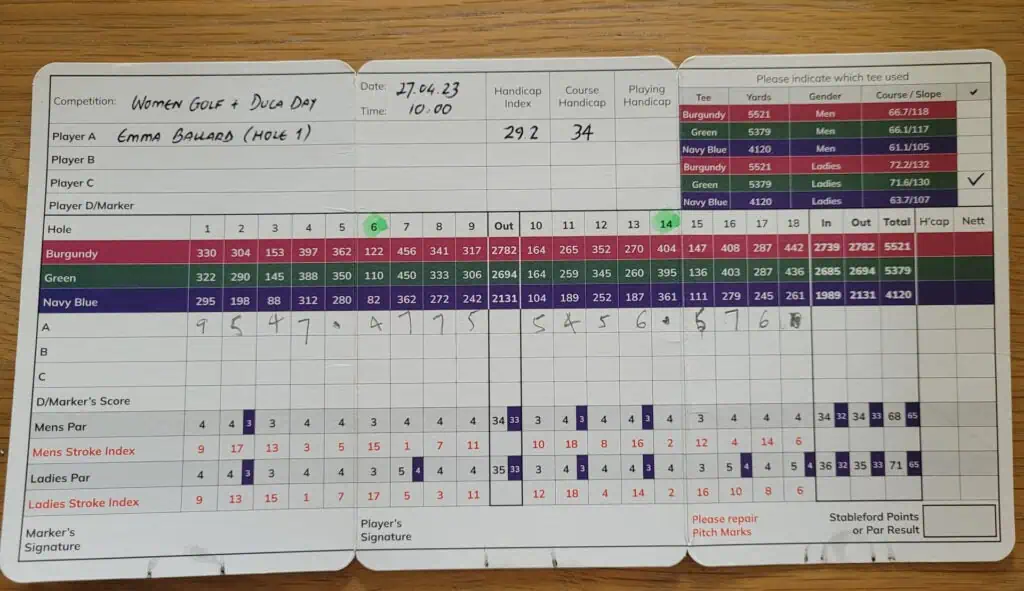 Competition: WOMEN GOLF + DUCA DAY Date: 27.04.23 Time: 10.00 Handicap Index Course Handicap Playing Handicap
Player A EMMA BALLARD (HOLE 1) 29.2 34
Player B
Player C
Player D/Marker
Please indicate which tee used
Tee Yards Gender Course / Slope ✓
Burgundy 5521 Men 66.7/118
Green 5379 Men 66.1/117
Navy Blue 4120 Men 61.1/105
Burgundy 5521 Ladies 72.2/132
Green 5379 Ladies 71.6/130 ✓
Navy Blue 4120 Ladies 63.7/107
Hole 1 2 3 4 5 6 7 8 9 Out 10 11 12 13 14 15 16 17 18 In Out Total H'cap Nett
Burgundy 330 304 153 397 362 122 456 341 317 2782 164 265 352 270 404 147 408 287 442 2739 2782 5521
Green 322 290 145 388 350 110 450 333 306 2694 164 259 345 260 395 136 403 287 436 2685 2694 5379
Navy Blue 295 198 88 312 280 82 362 272 242 2131 104 189 252 187 361 111 279 245 261 1989 2131 4120
A 9 5 4 7 4 7 7 5 5 4 5 6 5 7 6
B
C
D/Marker's Score
Mens Par 4 4 3 3 4 4 3 4 4 4 34 33 3 4 3 4 4 3 4 3 4 4 4 34 32 34 33 68 65
Mens Stroke Index 9 17 13 3 5 15 1 7 11 10 18 8 16 2 12 4 14 6
Ladies Par 4 4 3 3 4 4 3 5 4 4 4 35 33 3 4 3 4 4 3 4 3 5 4 4 5 4 36 32 35 33 71 65
Ladies Stroke Index 9 13 15 1 7 17 5 3 11 12 18 4 14 2 16 10 8 6
Marker's Signature
Player's Signature
Please repair Pitch Marks
Stableford Points or Par Result